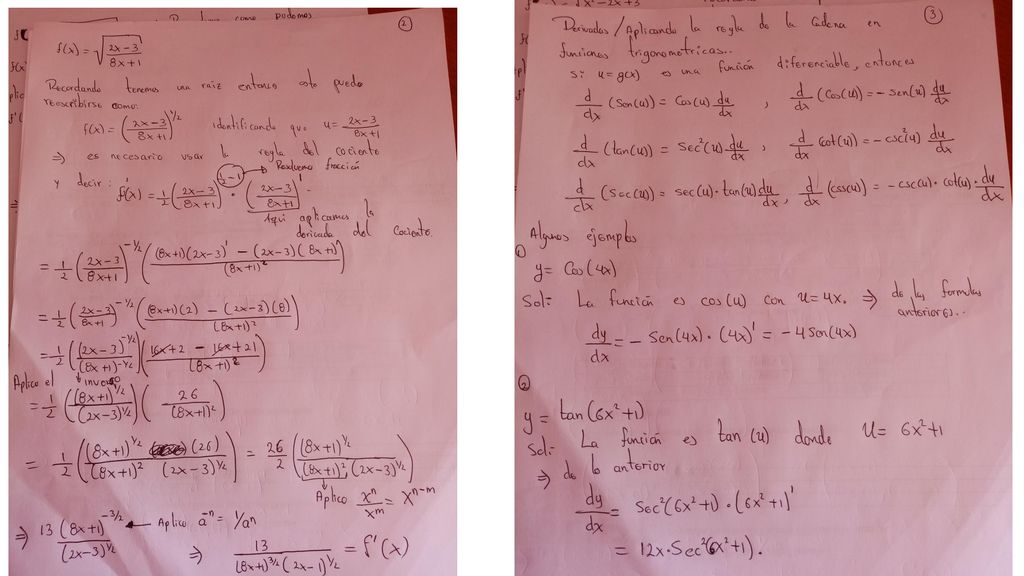 ②
f(x) = √((2x-3)/(8x+1))
Recordando tenemos una raiz entonces esto puede
reescribirse como:
f(x) = ((2x-3)/(8x+1))^(1/2) identificando que u = (2x-3)/(8x+1)
⇒ es necesario usar la regla del cociente
→ Resolvemos fracción
y decir: f'(x) = 1/2 ((2x-3)/(8x+1))^(1/2 - 1) · ((2x-3)/(8x+1))'
Aqui aplicamos la
derivada del Cociente
= 1/2 ((2x-3)/(8x+1))^(-1/2) (((8x+1)(2x-3)' - (2x-3)(8x+1)')/(8x+1)^2)
= 1/2 ((2x-3)/(8x+1))^(-1/2) (((8x+1)(2) - (2x-3)(8))/(8x+1)^2)
= 1/2 ((2x-3)^(-1/2)/(8x+1)^(-1/2)) ((16x+2 - 16x+21)/(8x+1)^2)
Aplico el inverso
= 1/2 ((8x+1)^(1/2)/(2x-3)^(1/2)) (26/(8x+1)^2)
= 1/2 ((8x+1)^(1/2) (26)/((8x+1)^2 (2x-3)^(1/2))) = 26/2 ((8x+1)^(1/2)/((8x+1)^2 (2x-3)^(1/2)))
Aplico x^n/x^m = x^(n-m)
⇒ 13 (8x+1)^(-3/2)/(2x-3)^(1/2) ← Aplico a^-n = 1/a^n
⇒ 13/((8x+1)^(3/2) (2x-1)^(1/2)) = f'(x)
③
Derivadas/Aplicando la regla de la Cadena en
funciones trigonometricas..
si u=g(x) es una función diferenciable, entonces
d/dx (Sen(u)) = Cos(u) du/dx , d/dx (Cos(u)) = - sen(u) du/dx
d/dx (tan(u)) = Sec²(u) du/dx , d/dx (cot(u)) = - csc²(u) du/dx
d/dx (Sec(u)) = sec(u)·tan(u) du/dx , d/dx (css(u)) = - csc(u)·cot(u)· du/dx
Algunos ejemplos
①
y = Cos(4x)
Sol: La función es cos(u) con u=4x. ⇒ de las formulas
anteriores..
dy/dx = - Sen(4x) · (4x)' = - 4 Sen(4x)
②
y = tan(6x²+1)
Sol: La función es tan (u) donde u = 6x²+1
⇒ de lo anterior
dy/dx = Sec²(6x²+1) · (6x²+1)'
= 12x·Sec²(6x²+1).